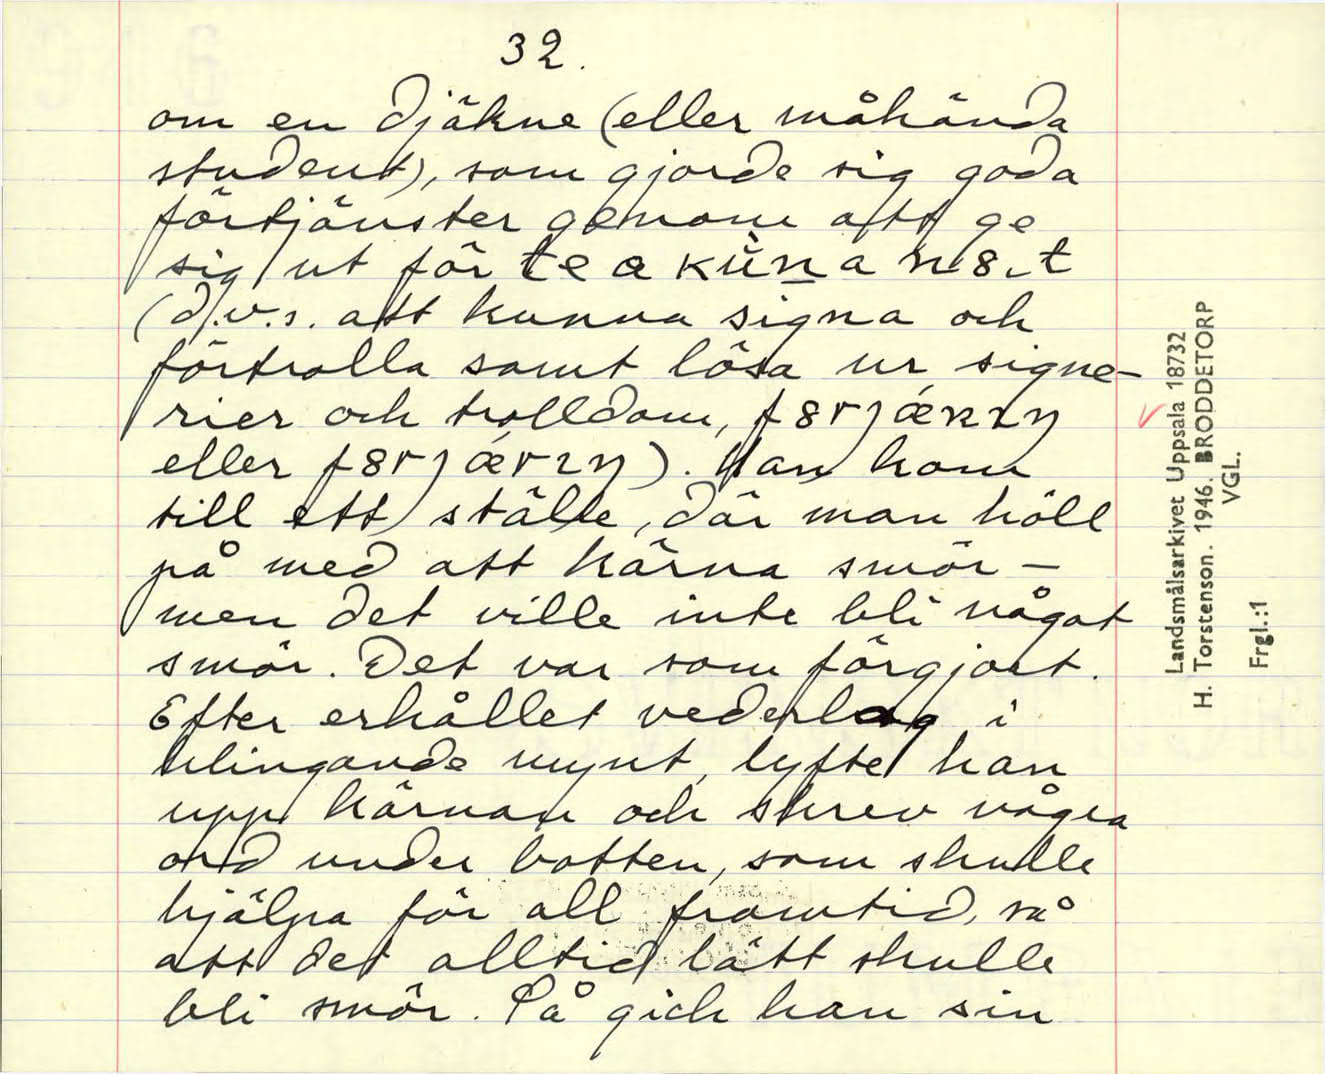 32.
om en djäkne (eller måhända
student), som gjorde sig goda
förtjänster genom att ge
sig ut för
(d.v.s. att kunna signa och
förtrolla samt lösa ur signe-
rier och trolldom,
eller ). Han kom
till ett ställe, där man höll
på med att kärna smör –
men det ville inte bli något
smör. Det var som förgjort.
Efter erhållet vederlag i
klingande mynt, lyfte han
upp kärnan och skrev några
ord under botten, som skulle
hjälpa för all framtid, så
att det alltid lätt skulle
bli smör. Så gick han sin
Landsmålsarkivet Uppsala 18732
H. Torstenson. 1946. BRODDETORP
VGL.
Frgl.:1